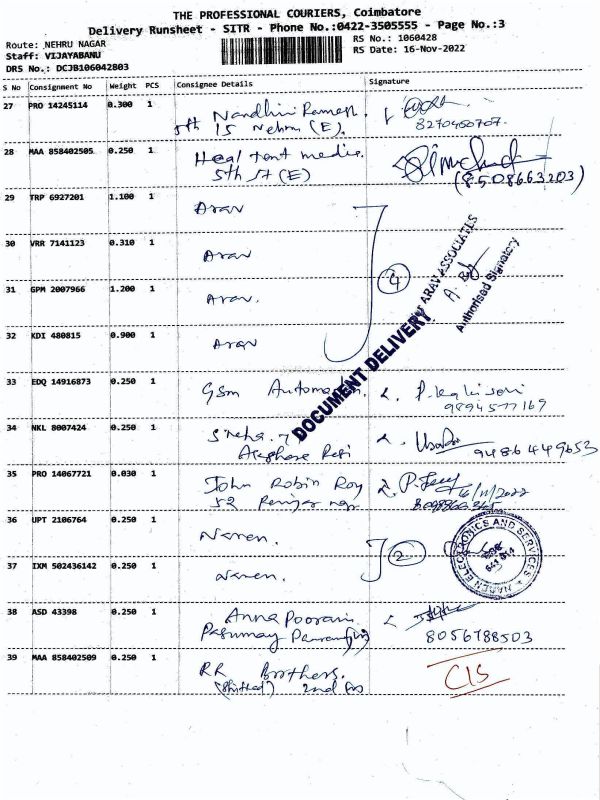 THE PROFESSIONAL COURIERS, Coimbatore
Delivery Runsheet - SITR - Phone No.:0422-3505555 - Page No.:3
Route: NEHRU NAGAR
Staff: VIJAYABANU
DRS No.: DCJB106042803
RS No.: 1060428
RS Date: 16-Nov-2022
S No Consignment No Weight PCS Consignee Details Signature
27 PRO 14245114 0.300 1 Nandhini Ramesh.
5th 15 Nehru (E).
8270460707.
28 MAA 858402505 0.250 1 Heal tent media.
5th St (E)
(8508663203)
29 TRP 6927201 1.100 1 Arav
30 VRR 7141123 0.310 1 Arav
31 GPM 2007966 1.200 1 Arav.
32 KDI 480815 0.900 1 Arav
4
DOCUMENT DELIVERY
ARAV ASSOCIATES
Authorised Signatory
33 EDQ 14916873 0.250 1 GSM Automation.
9894577169
34 NKL 8007424 0.250 1 Sneha.
9486449653
35 PRO 14067721 0.030 1 John Robin Roy
52
16/11/2022
36 UPT 2106764 0.250 1 Naren.
37 IXM 502436142 0.250 1 Naren.
2
NAREN ELECTRONICS AND SERVICES
641 014
38 ASD 43398 0.250 1 Anna Poorani.
8056788503
39 MAA 858402509 0.250 1 RR Brothers.
(Shifted) 2nd
C/S